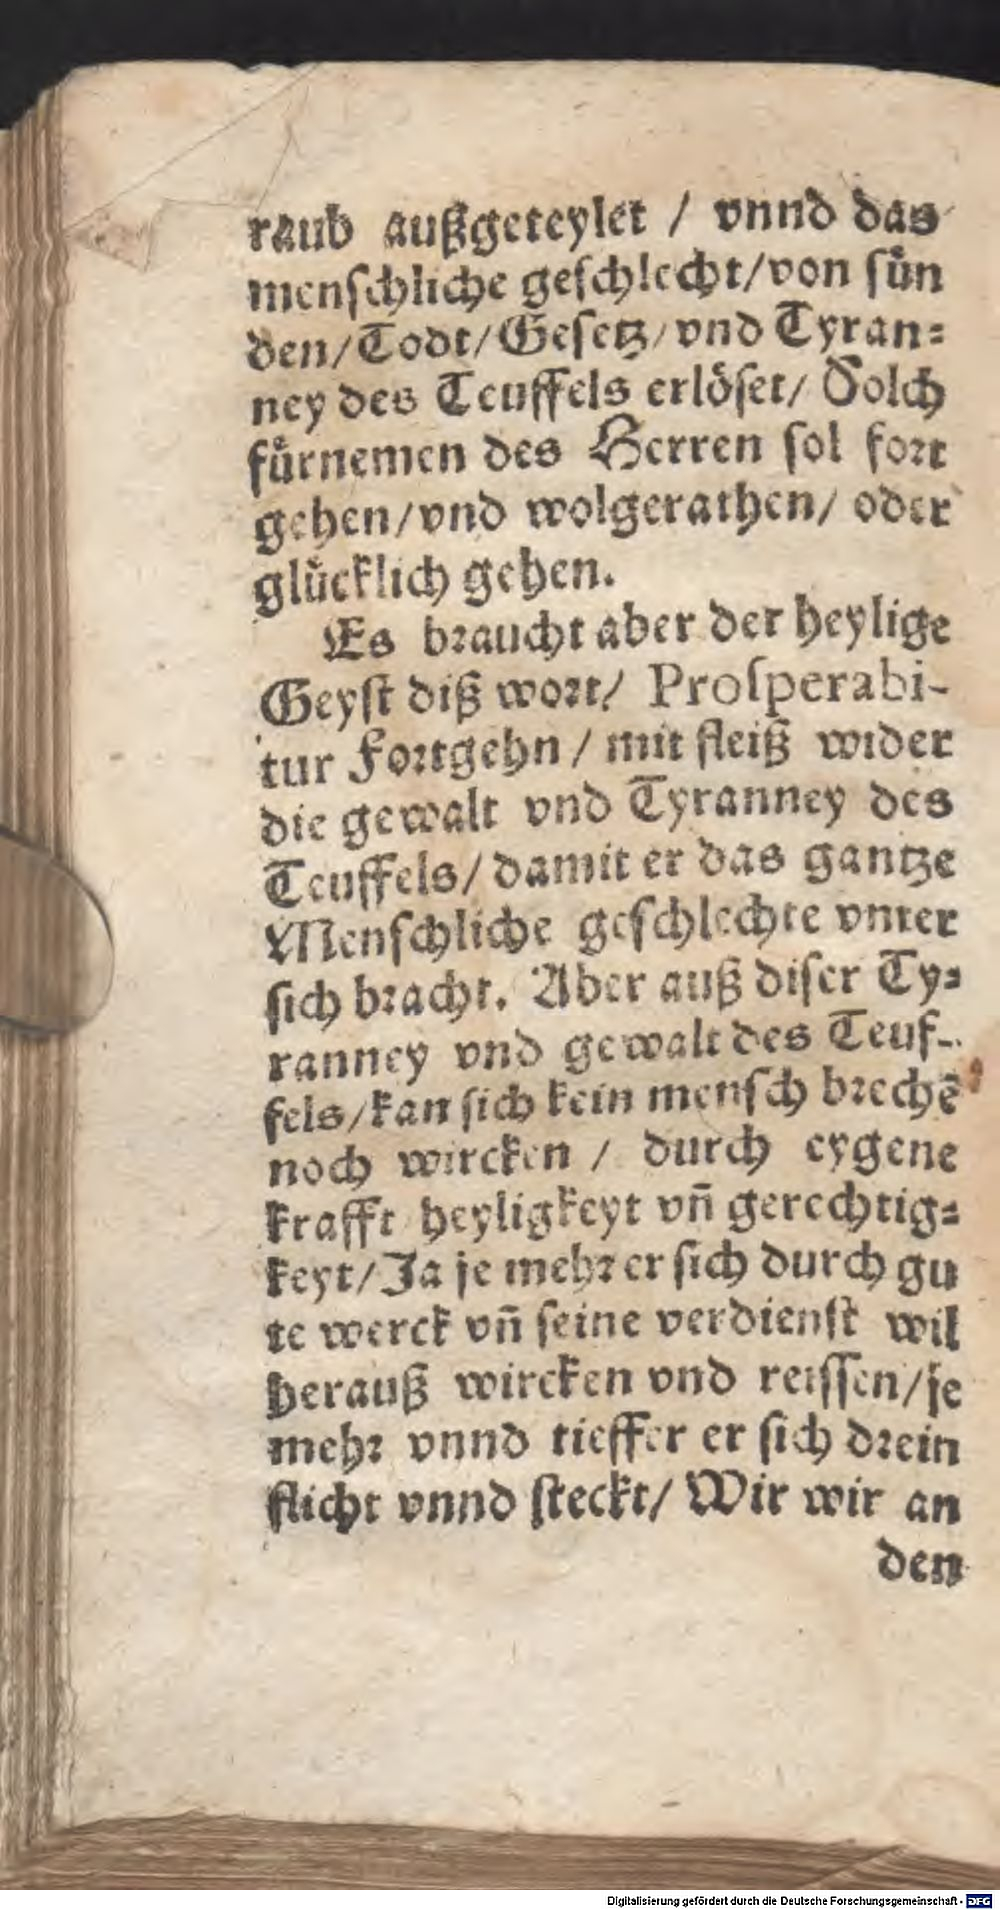 raub außgeteylet / vnnd das
menschliche geschlecht/von sün
den/Todt/Gesetz/vnd Tyran-
ney des Teuffels erlöset/ Solch
fürnemen des Herren sol fort
gehen/vnd wolgerathen/ oder
glücklich gehen.
Es braucht aber der heylige
Geyst diß wort/ Prosperabi-
tur Fortgehn / mit fleiß wider
die gewalt vnd Tyranney des
Teuffels/damit er das gantze
Menschliche geschlechte vnter
sich bracht. Aber auß diser Ty-
ranney vnd gewalt des Teuf-
fels/kan sich kein mensch brechē
noch wircken / durch eygene
krafft heyligkeyt vñ gerechtig-
keyt/Ja je mehr er sich durch gu
te werck vñ seine verdienst wil
herauß wircken vnd reissen/je
mehr vnnd tieffer er sich drein
flicht vnnd steckt/ Wir wir an
den
Digitalisierung gefördert durch die Deutsche Forschungsgemeinschaft - DFG